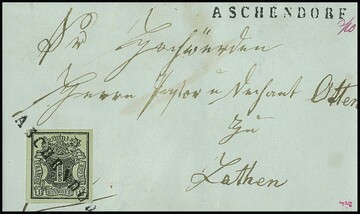 ASCHENDORF
Sr Hochwürden
Herrn Pastor und Dechant Otten
zu
Lathen
ASCHENDORF